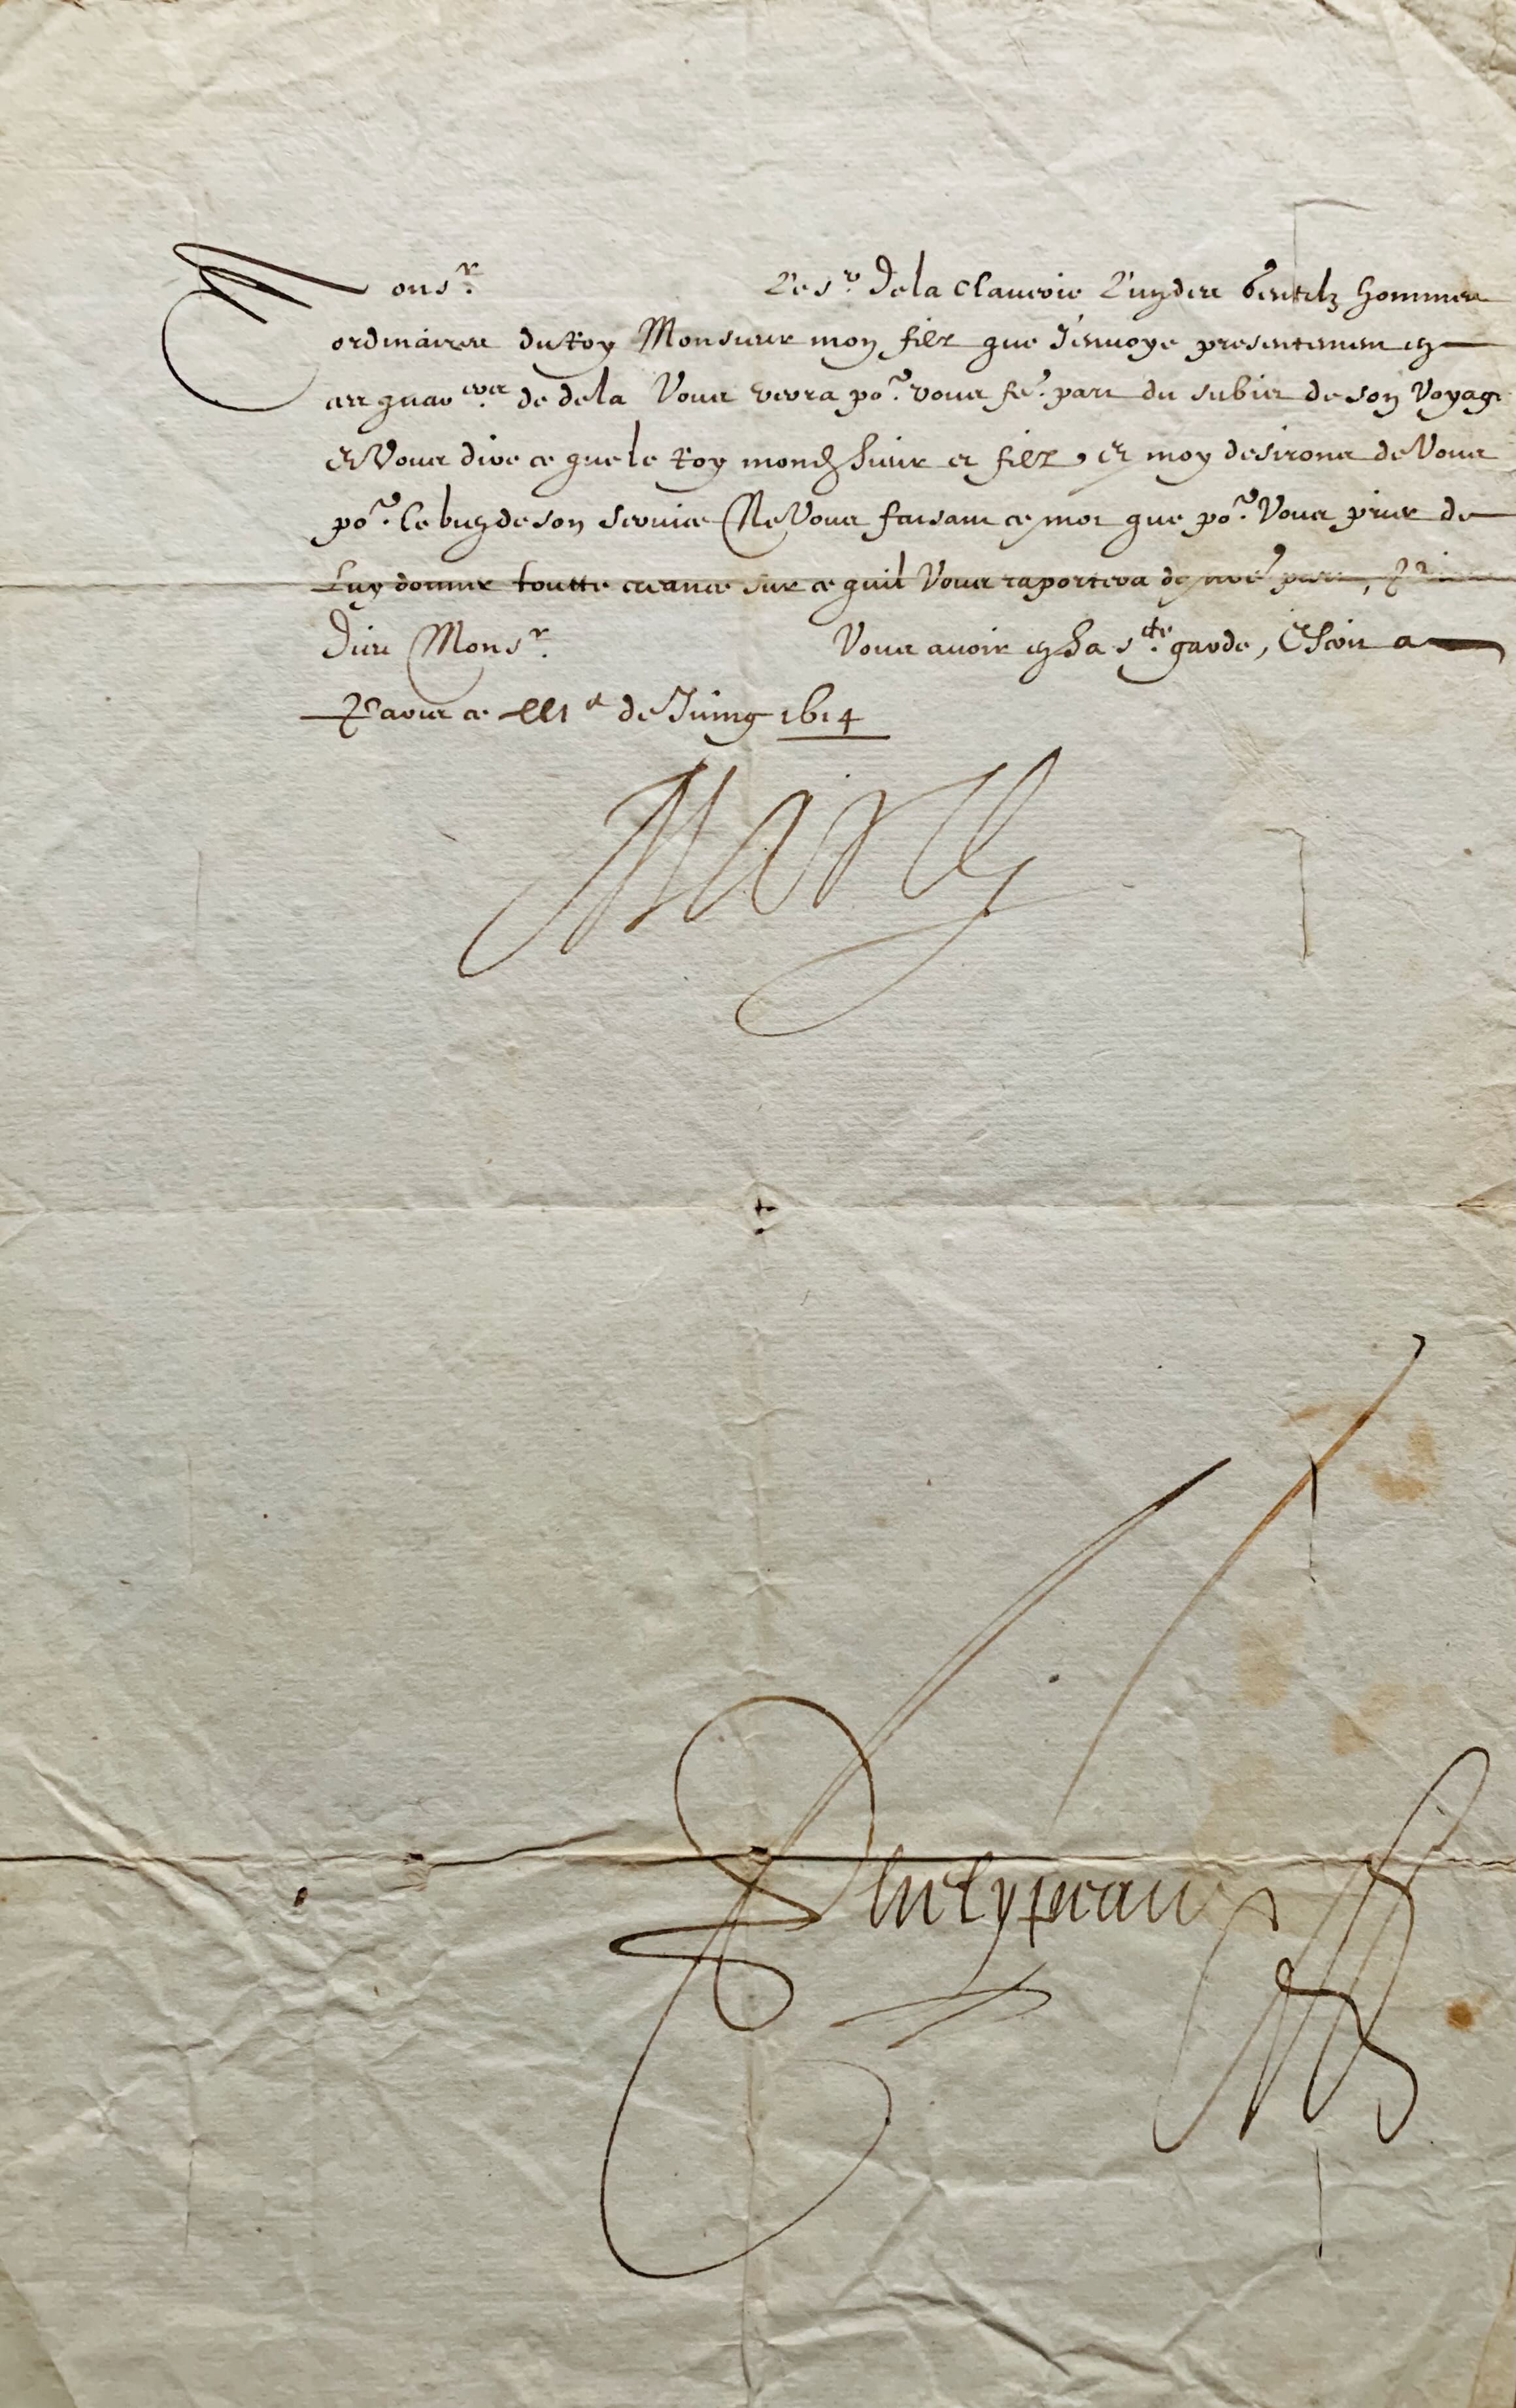 Monsr. Le sr. de la Claverie l'un des Gentilz hommes
ordinaires du Roy Monsieur mon filz que J'envoye presentement en
ces quartiers de dela Vous verra por. vous fe. part du subiet de son voyage
Et Vous dire ce que le Roy mond. Sieur et filz, et moy desirons de Vous
por. le bien de son service Ne Vous faisant ce mot que por. Vous prier de
Luy donner toutte creance sur ce quil Vous raportera de nre. part,
Dieu Monsr. Vous avoir en Sa ste. garde, Escrit a
Paris ce de Juing 1614
Marie
Phelypeaux